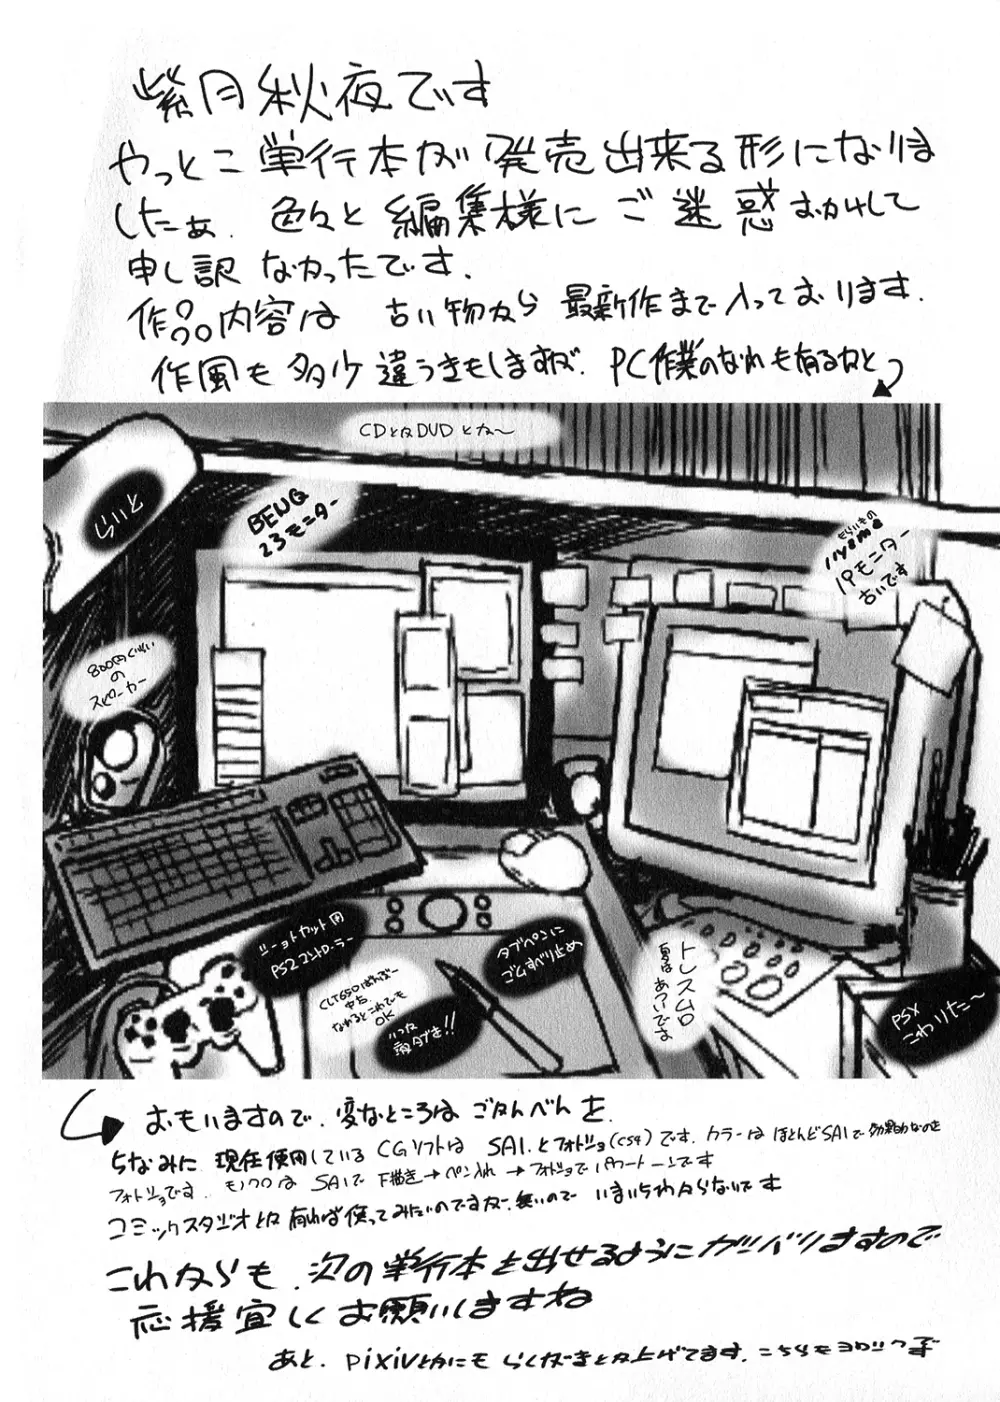 紫月秋夜です
やっとこ単行本が発売出来る形になりま
したぁ. 色々と編集様にご迷惑おかけして
申し訳なかったです.
作品内容は 古い物から最新作まで入っております.
作風も多少違うきもしますが. PC作業のなれも有るかと
CDとかDVDとか〜
らいと
BENQ
23モニター
もらいもの
iiyama
19モニター
古いです
800円くらい
の
スピーカー
ショートカット用
PS2コントローラー
タブペンに
ゴムすべり止め
中古.
なれるとこれでも
OK
トレス台
夏はあついです
PSX
こわりた〜
おもいますので. 変なところはごかんべんを
ちなみに 現在使用しているCGソフトは SAI.とフォトショ(CS4)です. カラーは ほとんどSAIで 効果的なのを
フォトショです. モノクロは SAIで 下描き→ペン入れ→フォトショでパワートーンです
コミックスタジオとか 有れば使ってみたいのですが. 無いので いまいちわからないです
これからも.次の単行本を出せるようにガンバりますので
応援宜しくお願いしますね
あと. pixivとかにもらくがきとか上げてます. こちらもヨロシクです